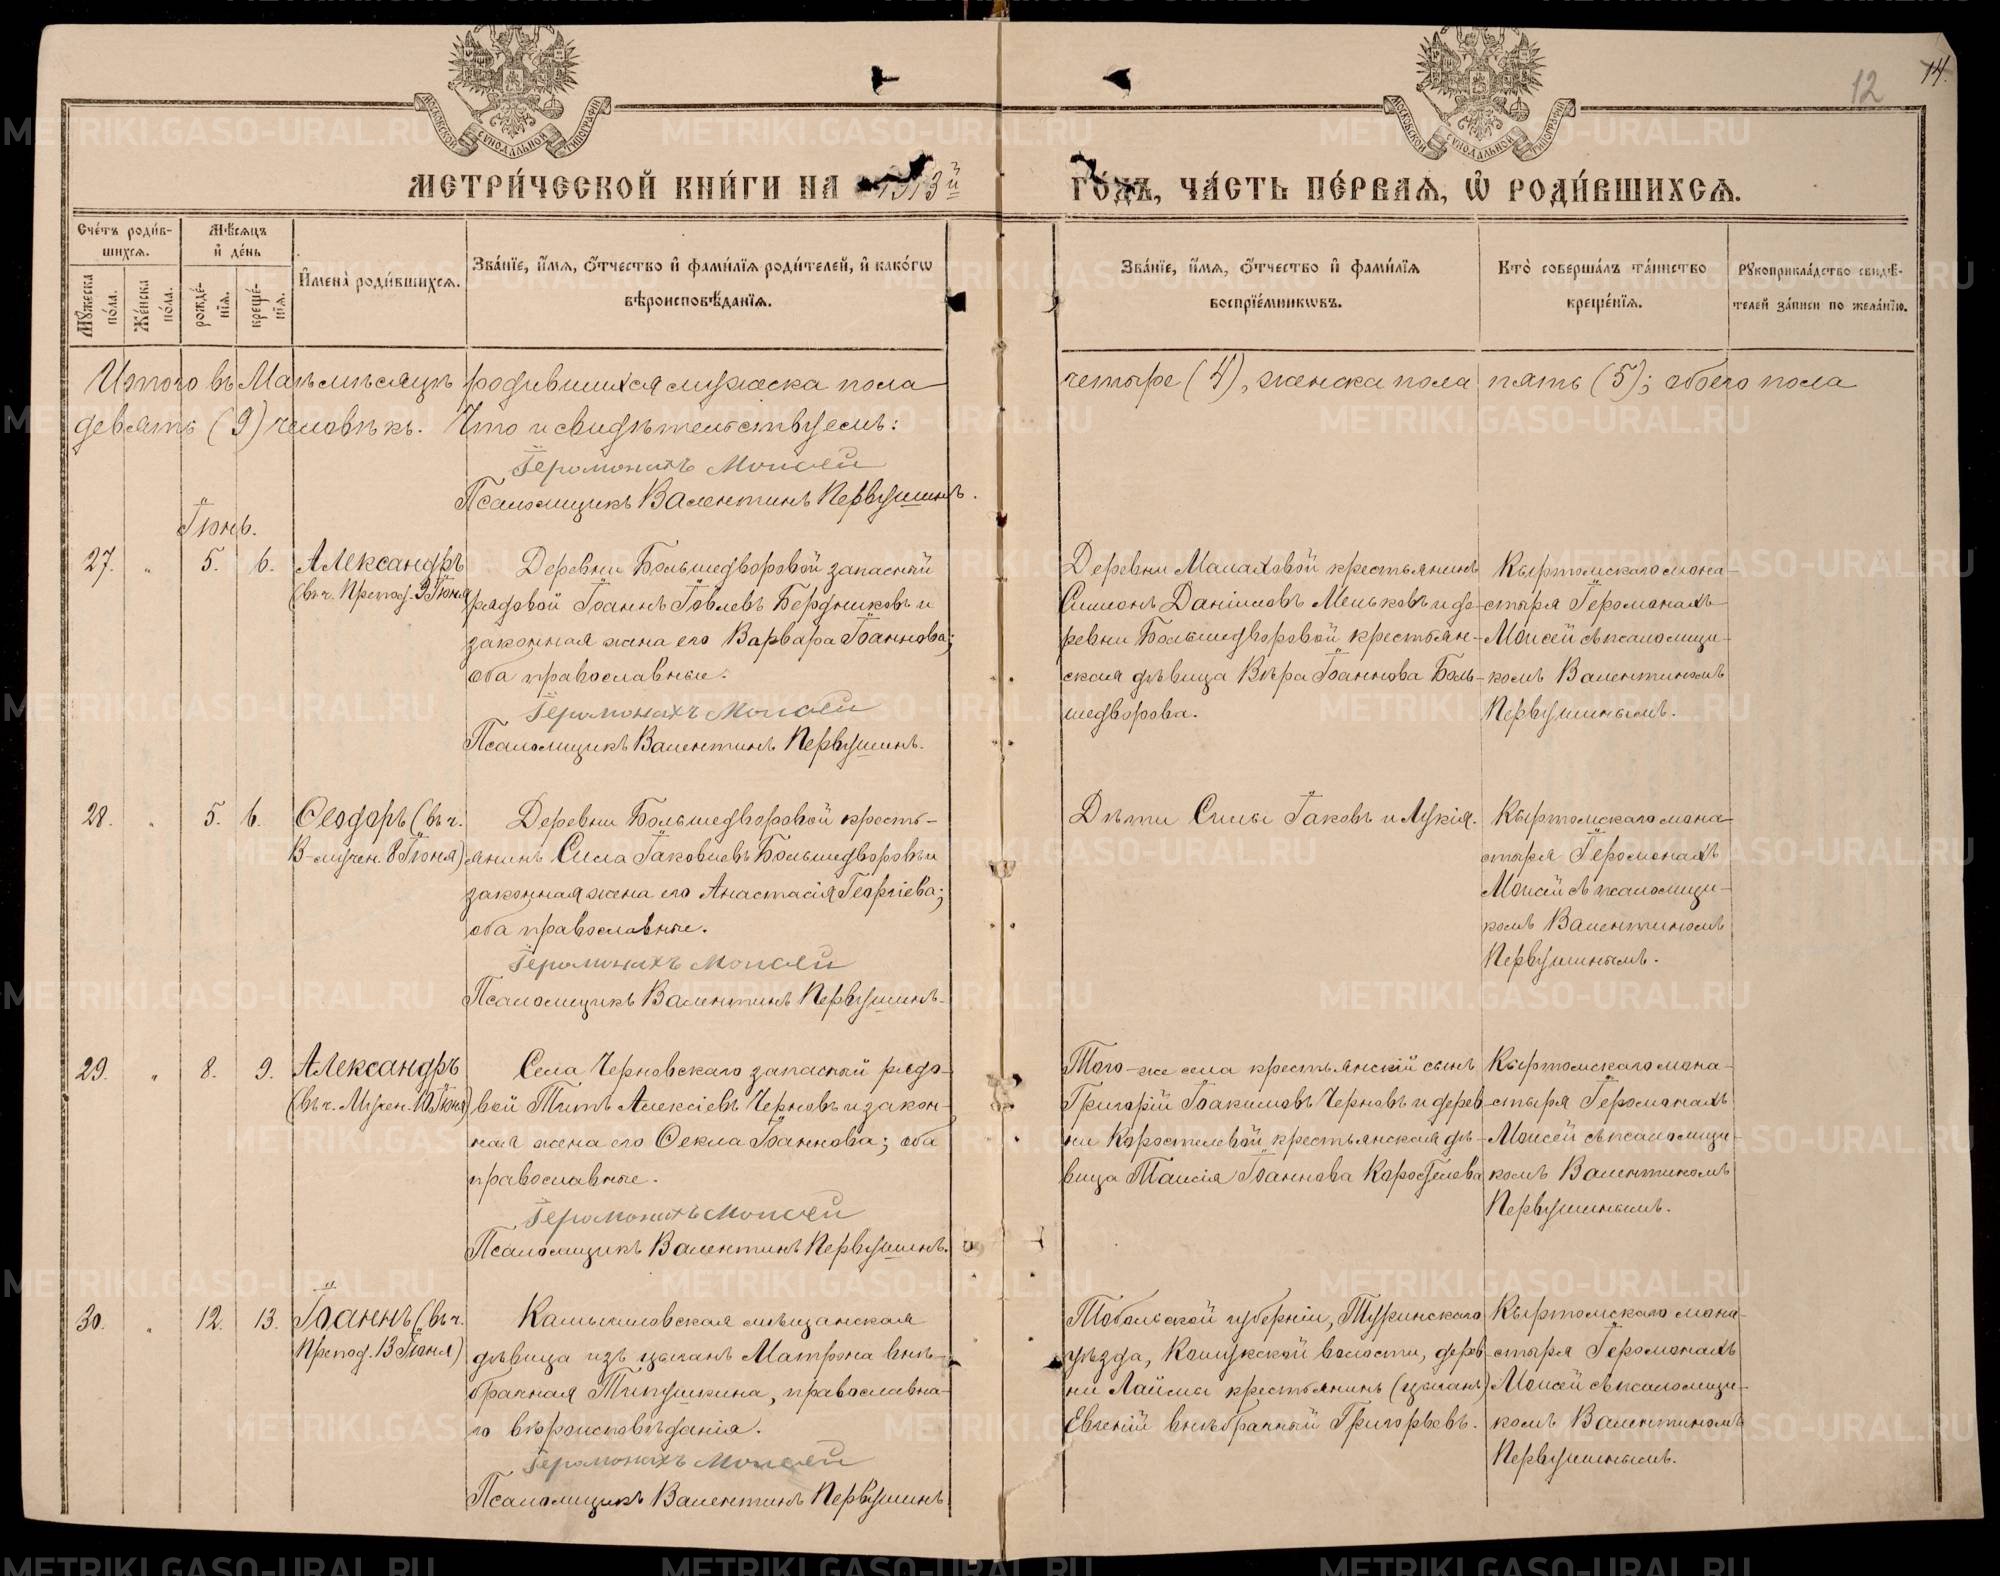 12
14.
МОСКОВСКОЙ СУНОДАЛЬНОЙ ТИПОГРАФІИ
МОСКОВСКОЙ СУНОДАЛЬНОЙ ТИПОГРАФІИ
МЕТРИ́ЧЕСКОЙ КНИ́ГИ НА 1913й ГО́ДЪ, ЧА́СТЬ ПЕ́РВАѦ, Ѡ҆ РОДИ́ВШИХСѦ.
Сче́тъ роди́в-
шихсѧ.
Мꙋжеска по́ла.
Же́нска по́ла.
Мѣ́сѧцъ
и҆ де́нь
рожде́-
нїѧ.
креще́-
нїѧ.
И҆мена̀ роди́вшихсѧ.
Зва́нїе, и҆́мѧ, ѻ҆́тчество и҆ фами́лїѧ роди́телей, и҆ како́гѡ
вѣроисповѣ́данїѧ.
Зва́нїе, и҆́мѧ, ѻ҆́тчество и҆ фами́лїѧ
воспрїе́мникѡвъ.
Кто̀ соверша́лъ та́инство
креще́нїѧ.
Рꙋкоприкла́дство свидѣ́-
телей за́писи по жела́нїю.
Итого въ Маѣ мѣсяцѣ родившихся мужеска пола четыре (4), женска пола пять (5); обоего пола
девять (9) человѣкъ. Что и свидѣтельствуемъ:
Іеромонахъ Моисей
Псаломщикъ Валентинъ Первушинъ.
Іюнь.
27. " 5. 6.
Александръ
(въ ч. Препод. 9 Іюня)
Деревни Большедворовой запасный
рядовой Іоаннъ Іовлевъ Бердниковъ и
законная жена его Варвара Іоаннова;
оба православные.
Іеромонахъ Моисей
Псаломщикъ Валентинъ Первушинъ.
Деревни Малаховой крестьянинъ
Симеонъ Даніиловъ Меньковъ и де-
ревни Большедворовой крестьян-
ская дѣвица Вѣра Іоаннова Боль-
шедворова.
Кыртомскаго мона-
стыря Іеромонахъ
Моисей съ псаломщи-
комъ Валентиномъ
Первушинымъ.
28. " 5. 6.
Ѳеодоръ (въ ч.
В-мучен. 8 Іюня)
Деревни Большедворовой кресть-
янинъ Сила Іаковлевъ Большедворовъ и
законная жена его Анастасія Георгіева;
оба православные.
Іеромонахъ Моисей
Псаломщикъ Валентинъ Первушинъ.
Дѣти Силы Іаковъ и Лукія.
Кыртомскаго мона-
стыря Іеромонахъ
Моисей съ псаломщи-
комъ Валентиномъ
Первушинымъ.
29. " 8. 9.
Александръ
(въ ч. Мучен. 10 Іюня)
Села Черновскаго запасный рядо-
вой Титъ Алексіевъ Черновъ и закон-
ная жена его Ѳекла Іоаннова; оба
православные.
Іеромонахъ Моисей
Псаломщикъ Валентинъ Первушинъ.
Того-же села крестьянскій сынъ
Григорій Іоакимовъ Черновъ и дерев-
ни Коростелевой крестьянская дѣ-
вица Таисія Іоаннова Коростелева
Кыртомскаго мона-
стыря Іеромонахъ
Моисей съ псаломщи-
комъ Валентиномъ
Первушинымъ.
30. " 12. 13.
Іоаннъ (въ ч.
Препод. 13 Іюня)
Камышловская мѣщанская
дѣвица изъ цыганъ Матрона внѣ-
брачная Типушкина, православна-
го вѣроисповѣданія.
Іеромонахъ Моисей
Псаломщикъ Валентинъ Первушинъ
Тобольской губерніи, Туринскаго
уѣзда, Кошукской волости, дерев-
ни Лаймы крестьянинъ (цыганъ)
Евгеній внѣбрачный Григорьевъ.
Кыртомскаго мона-
стыря Іеромонахъ
Моисей съ псаломщи-
комъ Валентиномъ
Первушинымъ.
METRIKI.GASO-URAL.RU